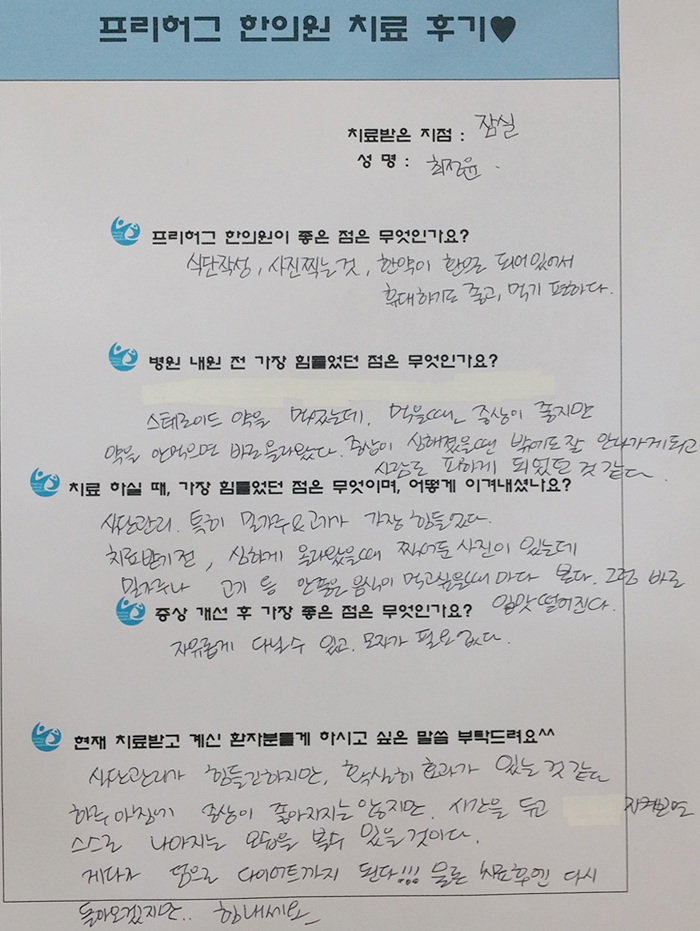 프리허그 한의원 치료 후기♥
치료받은 지점 : 잠실
성 명 : 최진윤.
프리허그 한의원이 좋은 점은 무엇인가요?
식단작성, 사진찍는것, 한약이 환으로 되어있어서
휴대하기도 좋고, 먹기 편하다.
병원 내원 전 가장 힘들었던 점은 무엇인가요?
스테로이드 약을 먹었는데, 먹을때는 증상이 좋지만
약을 안먹으면 바로올라왔다. 증상이 심해졌을때는 밖에도 잘 안나가게되고
사람도 피하게 되었던 것 같다.
치료 하실 때, 가장 힘들었던 점은 무엇이며, 어떻게 이겨내셨나요?
식단관리. 특히 밀가루요고기가 가장 힘들었다.
치료받기전, 심하게 올라왔을때 찍어둔 사진이 있는데
밀가루나 고기 등 안좋은 음식이 먹고싶을때 마다 본다. 그럼 바로
입맛 떨어진다.
증상 개선 후 가장 좋은 점은 무엇인가요?
자유롭게 다닐수 있고. 모자가 필요없다.
현재 치료받고 계신 환자분들게 하시고 싶은 말씀 부탁드려요^^
식단관리가 힘들긴하지만, 확실히 효과가 있는 것 같다
하루 아침에 증상이 좋아지지는 않지만. 시간을 두고 지켜보면
스스로 나아지는 모습을 볼수 있을것이다.
게다가 덤으로 다이어트까지 된다!!! 물론 치료후엔 다시
돌아오겠지만.. 힘내세요